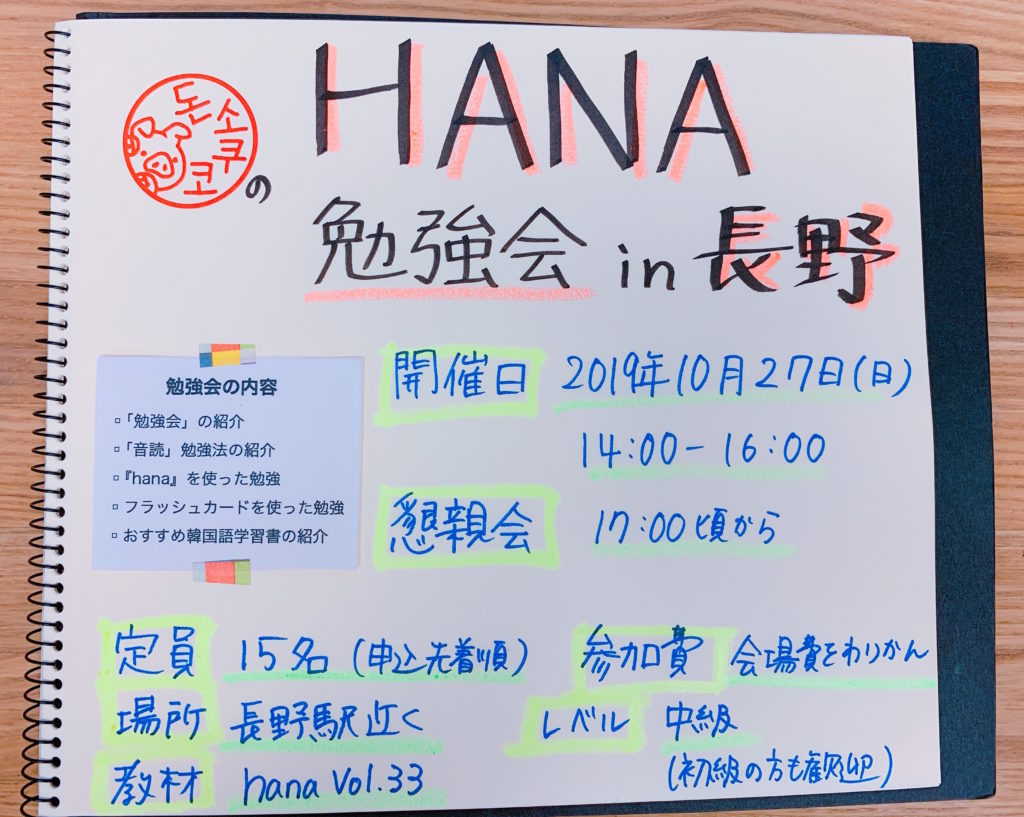 돈소쿠코
の
HANA
勉強会 in 長野
勉強会の内容
▫「勉強会」の紹介
▫「音読」勉強法の紹介
▫『hana』を使った勉強
▫ フラッシュカードを使った勉強
▫ おすすめ韓国語学習書の紹介
開催日 2019年10月27日(日)
14:00-16:00
懇親会 17:00頃から
定員 15名(申込先着順) 参加費 会場費をわりかん
場所 長野駅近く レベル 中級
教材 hana Vol.33 (初級の方も歓迎)